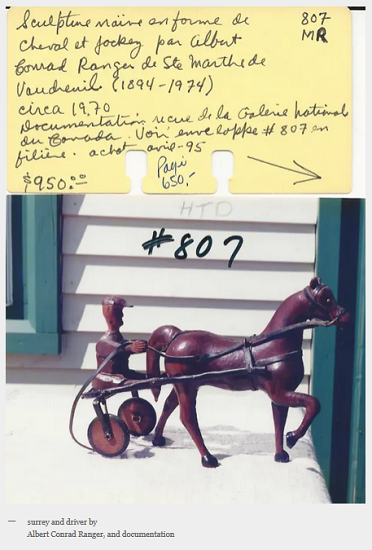 Sculpture naïve en forme de
807
MR
cheval et jockey par Albert
Conrad Ranger de Ste Marthe de
Vaudreuil (1894-1974)
circa 1970
Documentation recue de la Galerie National
du Canada. Voir enveloppe # 807 en
filière. achat avril-95
$950.00
Payé
650.-
HTD
#807
— surrey and driver by
Albert Conrad Ranger, and documentation